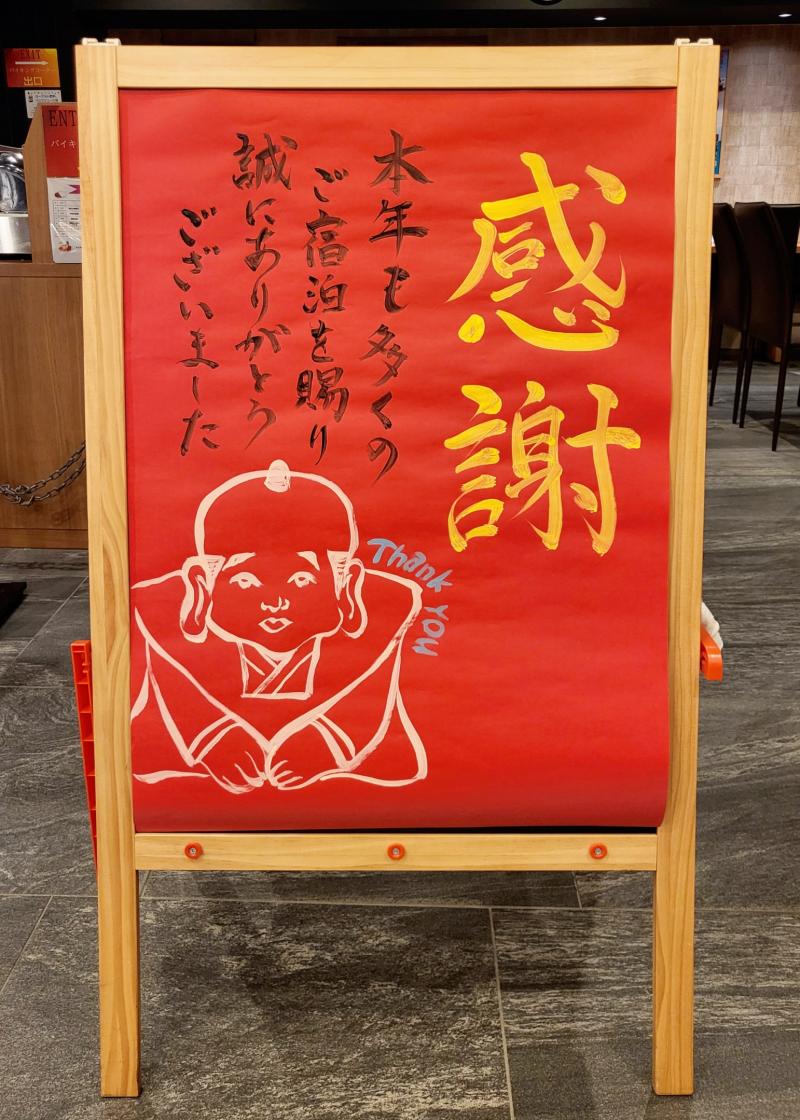 感謝
本年も多くの
ご宿泊を賜り
誠にありがとう
ございました
Thank you
EXIT
バイキングコーナー
出口
ENT
バイキ